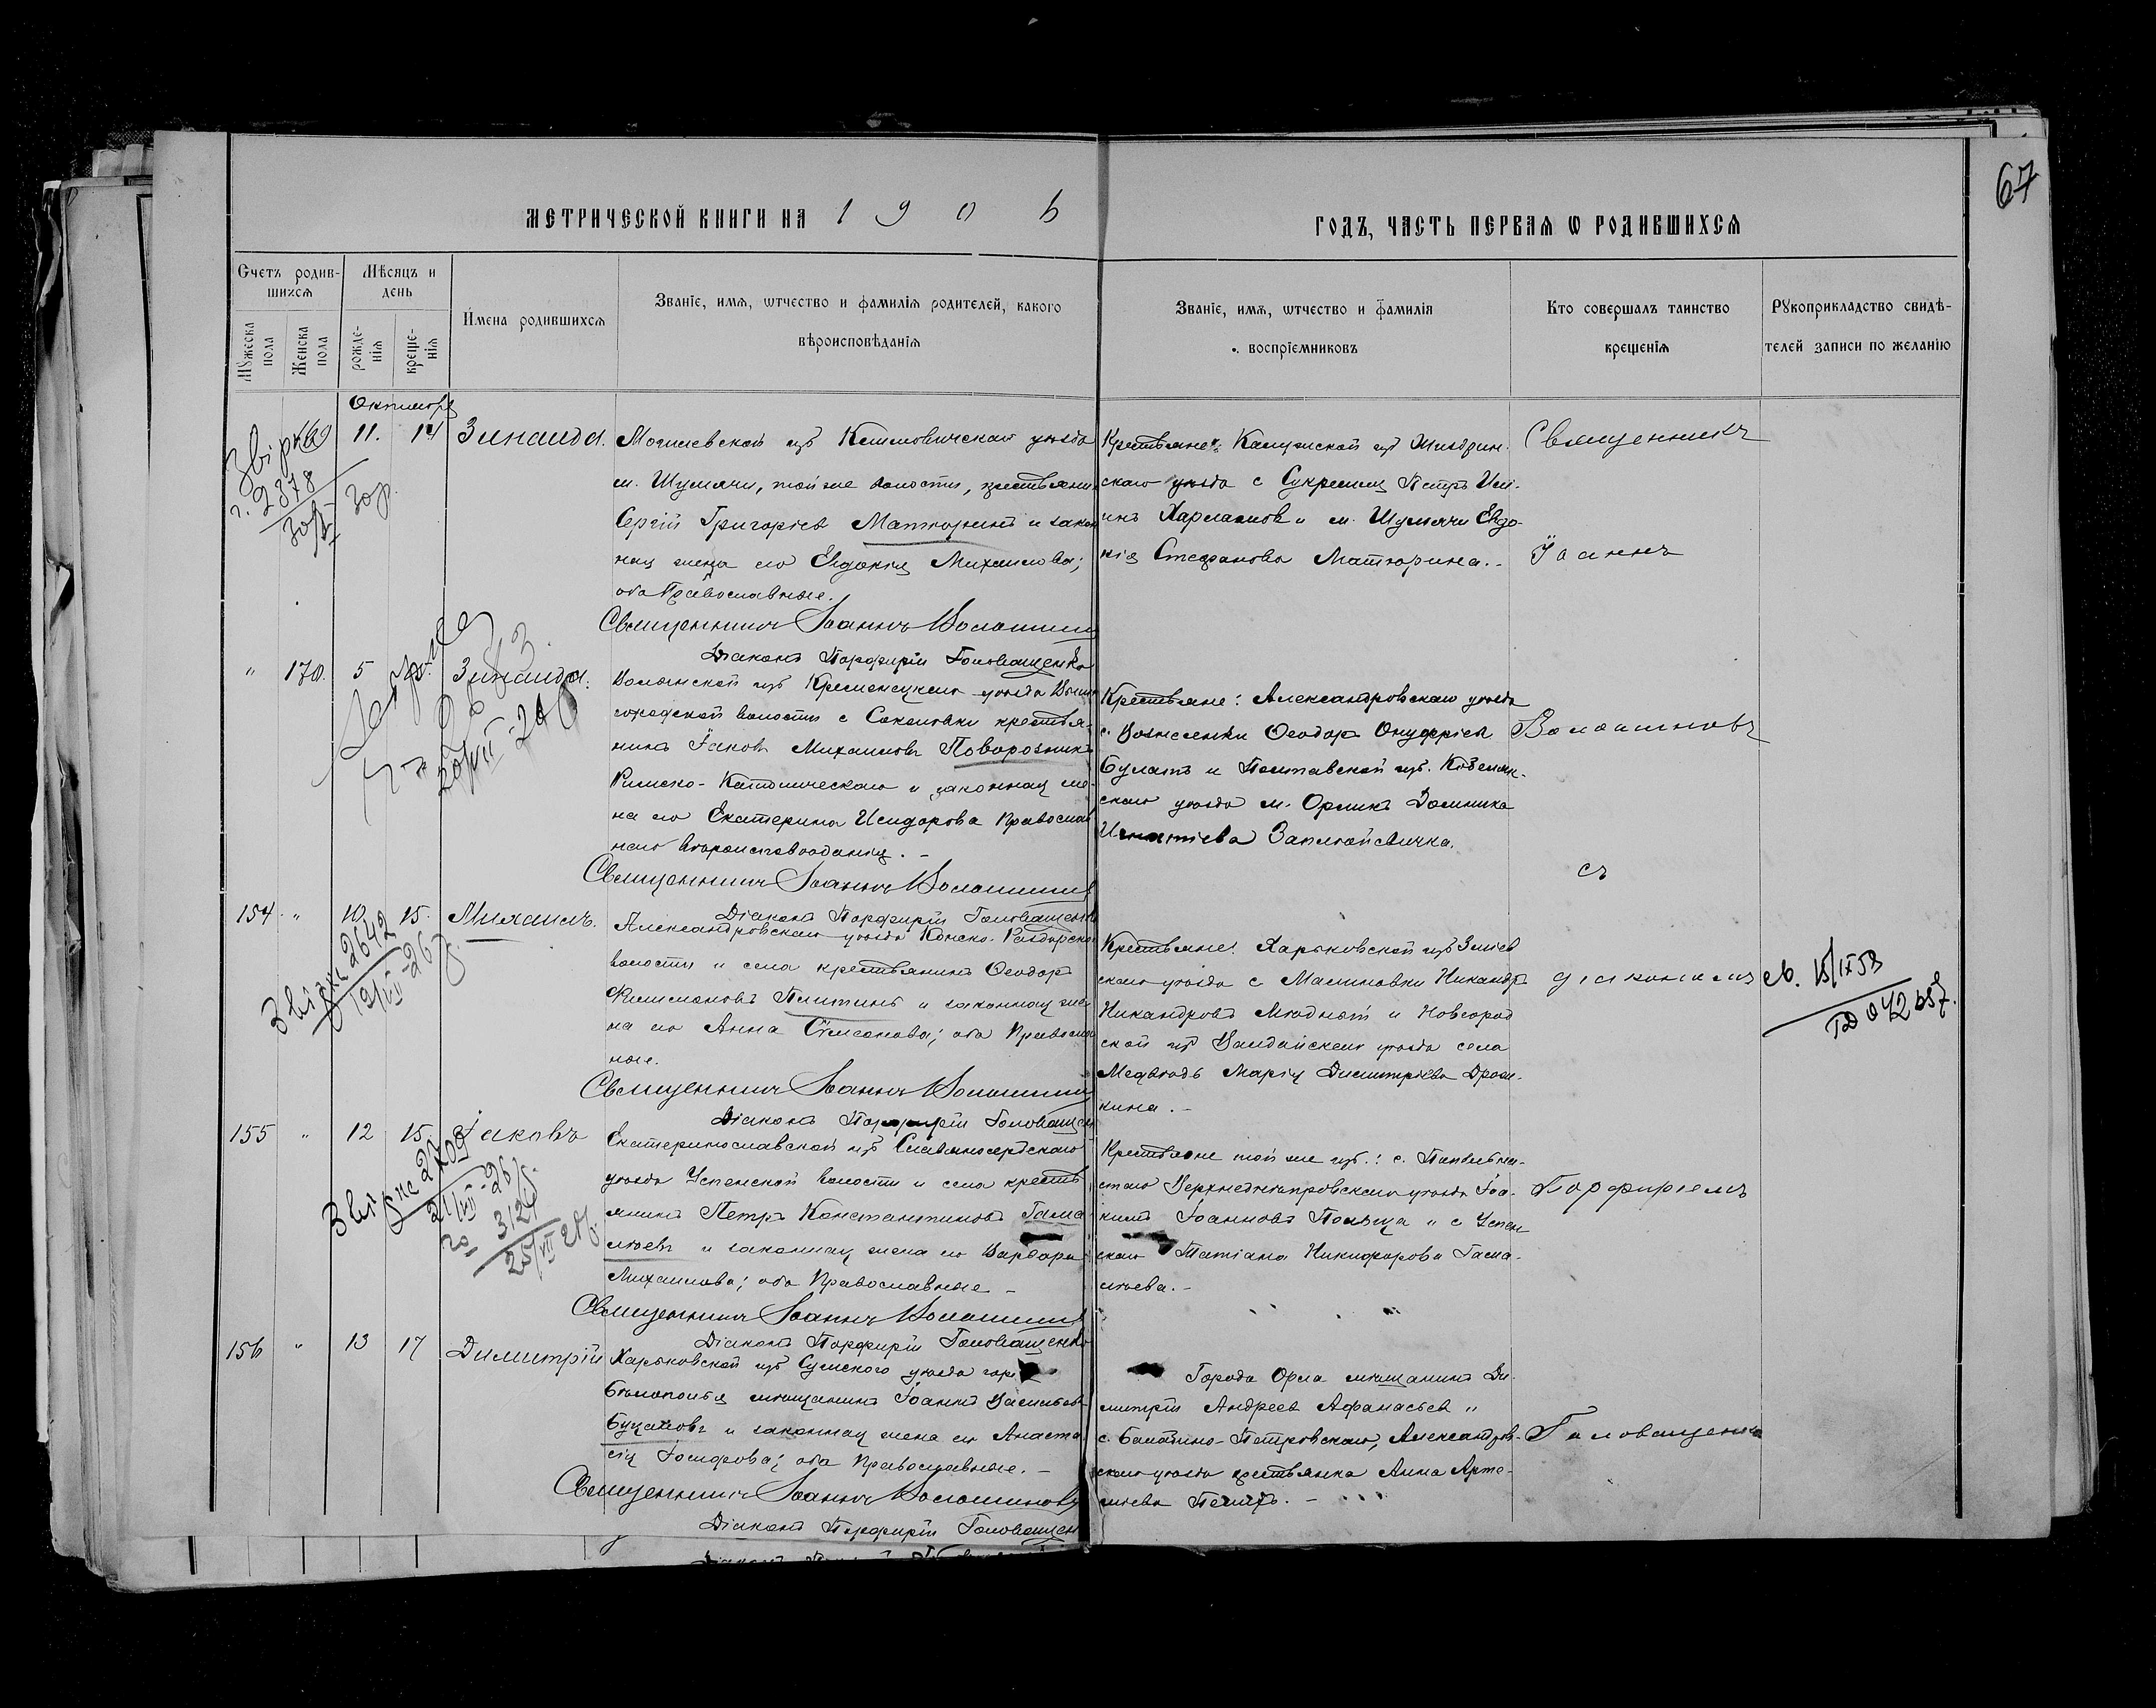 67
МЕТРИЧЕСКОЙ КНИГИ НА 1906 ГОДЪ, ЧАСТЬ ПЕРВАЯ Ѡ РОДИВШИХСЯ
Счетъ родив-
шихся
Мѣсяцъ и
день
Мужеска
пола
Женска
пола
рожде-
нія
креще-
нія
Имена родившихся
Званіе, имя, ѡтчество и фамилія родителей, какого
вѣроисповѣданія
Званіе, имя, ѡтчество и фамилія
воспріемниковъ
Кто совершалъ таинство
крещенія
Рукоприкладство свидѣ-
телей записи по желанію
Октября
11. 14 Зинаида.
Могилевской губ Климовичскаго уѣзда
м. Шумячи, той же волости, крестьянинъ
Сергій Григоріевъ Матюринъ и закон
ная жена его Евдокія Михаилова;
оба Православные.
Священникъ Іоаннъ Волошиновъ
Діаконъ Порфирій Головащенко
Крестьяне: Калужской губ Жиздрин-
скаго уѣзда с Сукремля Петръ Или-
инъ Харламовъ и м. Шумячи Евдо-
кія Стефанова Матюрина.-
Священникъ
Іоаннъ
Звірка
2378
" 170. 5 Зинаида.
Волынской губ Кременецкаго уѣзда
городской волости с Соколовки крестья-
нинъ Іаковъ Михаиловъ Поворозникъ
Римско-Католическаго и законная же-
на его Екатерина Исидорова Православ
наго вѣроисповѣданія.-
Священникъ Іоаннъ Волошиновъ
Діаконъ Порфирій Головащенко
Крестьяне: Александровскаго уѣзда
с. Вознесенки Ѳеодоръ Онуфріевъ
Булатъ и Полтавской губ. Кобеляк-
скаго уѣзда м. Орликъ Домника
Игнатіева
Волошиновъ
съ
154. " 10. 15. Михаилъ.
Александровскаго уѣзда Конско-Раздорской
волости и села крестьянинъ Ѳеодоръ
Филимоновъ Плитинъ и законная же-
на его Анна Симеонова; оба Православ
ные.
Священникъ Іоаннъ Волошиновъ
Діаконъ Порфирій Головащенко
Крестьяне: Харьковской губ Зміев
скаго уѣзда с Малиновки Никандръ
Никандровъ и Новгород
ской губ Валдайскаго уѣзда села
Медвѣдь Марія Димитріева
кина.-
діакономъ
15/IX 53
Звірка 2642
155 " 12 15. Іаковъ
Екатеринославской губ Славяносербскаго
уѣзда Успенской волости и села кресть
янинъ Петръ Константиновъ Гама
лѣевъ и законная жена его Варвара
Михаилова; оба Православные -
Священникъ Іоаннъ Волошиновъ
Діаконъ Порфирій Головащен
Крестьяне той же губ.: с.
Верхнеднѣпровскаго уѣзда Іоа-
кимъ Іоанновъ и с Успен
скаго Татіана Никифорова Гама-
лѣева.-
Порфиріемъ
3124
156 " 13 17 Димитрій
Харьковской губ Сумского уѣзда гор
Бѣлополья мѣщанинъ Іоаннъ Васильевъ
Буцановъ и законная жена его Анаста
сія Іосифова; оба Православные.-
Священникъ Іоаннъ Волошиновъ
Діаконъ Порфирій Головащен
Города Орла мѣщанинъ Ди-
митрій Андреевъ Афанасьевъ и
с. Балабино-Петровскаго, Александров-
скаго уѣзда крестьянка Анна Арте-
мьева
Головащенко